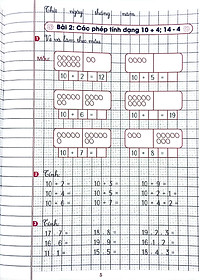 Thứ ngày tháng năm
Bài 2: Các phép tính dạng 10 + 4; 14 - 4
1 Vẽ và làm theo mẫu
Mẫu:
10 + 2 = 12 10 + 5 =
10 + 4 = 10 + = 19
10 + 7 = 10 + 8 =
2 Tính
10 + 2 = 10 + 5 = 10 + 9 =
10 + 4 = 10 + 6 = 10 + 2 + 1 =
10 + 6 = 10 + 8 = 10 + 4 + 2 =
3 Tính
17 - 7 = 18 - 8 = 19 - 9 =
16 - 6 = 19 - 9 =
11 - 1 = 15 - 5 =
5